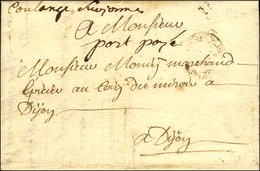 Coulange Sur Yonne
A Monsieur
port payé
Monsieur Monin marchand
Epicier au Coin du miroir a
Dijon
a Dijon